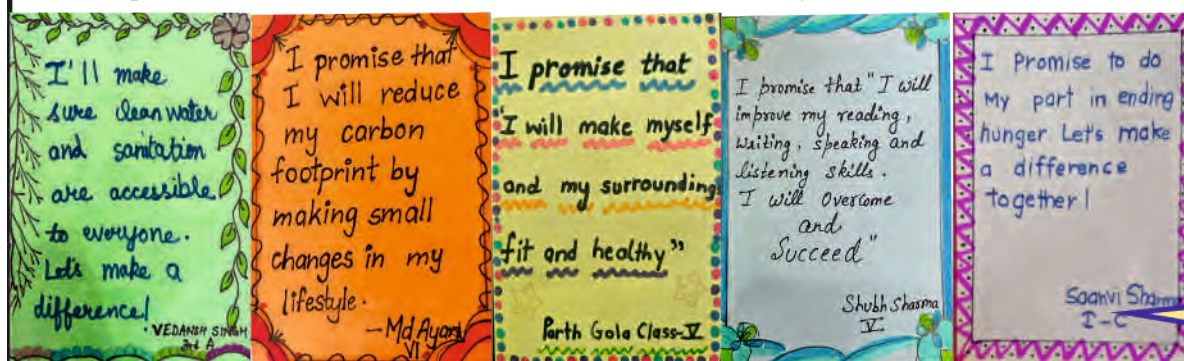 I'll make
sure clean water
and sanitation
are accessible
to everyone.
Let's make a
difference!
. VEDANSH SINGH
3rd A
I promise that
I will reduce
my carbon
footprint by
making small
changes in my
lifestyle.
- Md Ayan
VI
I promise that
"I will make myself
and my surroundings
fit and healthy"
Parth Gola Class-V
I promise that "I will
improve my reading,
writing, speaking and
listening skills.
I will overcome
and
Succeed"
Shubh Sharma
V
I Promise to do
My part in ending
hunger Let's make
a difference
together!
Saanvi Sharma
I-C